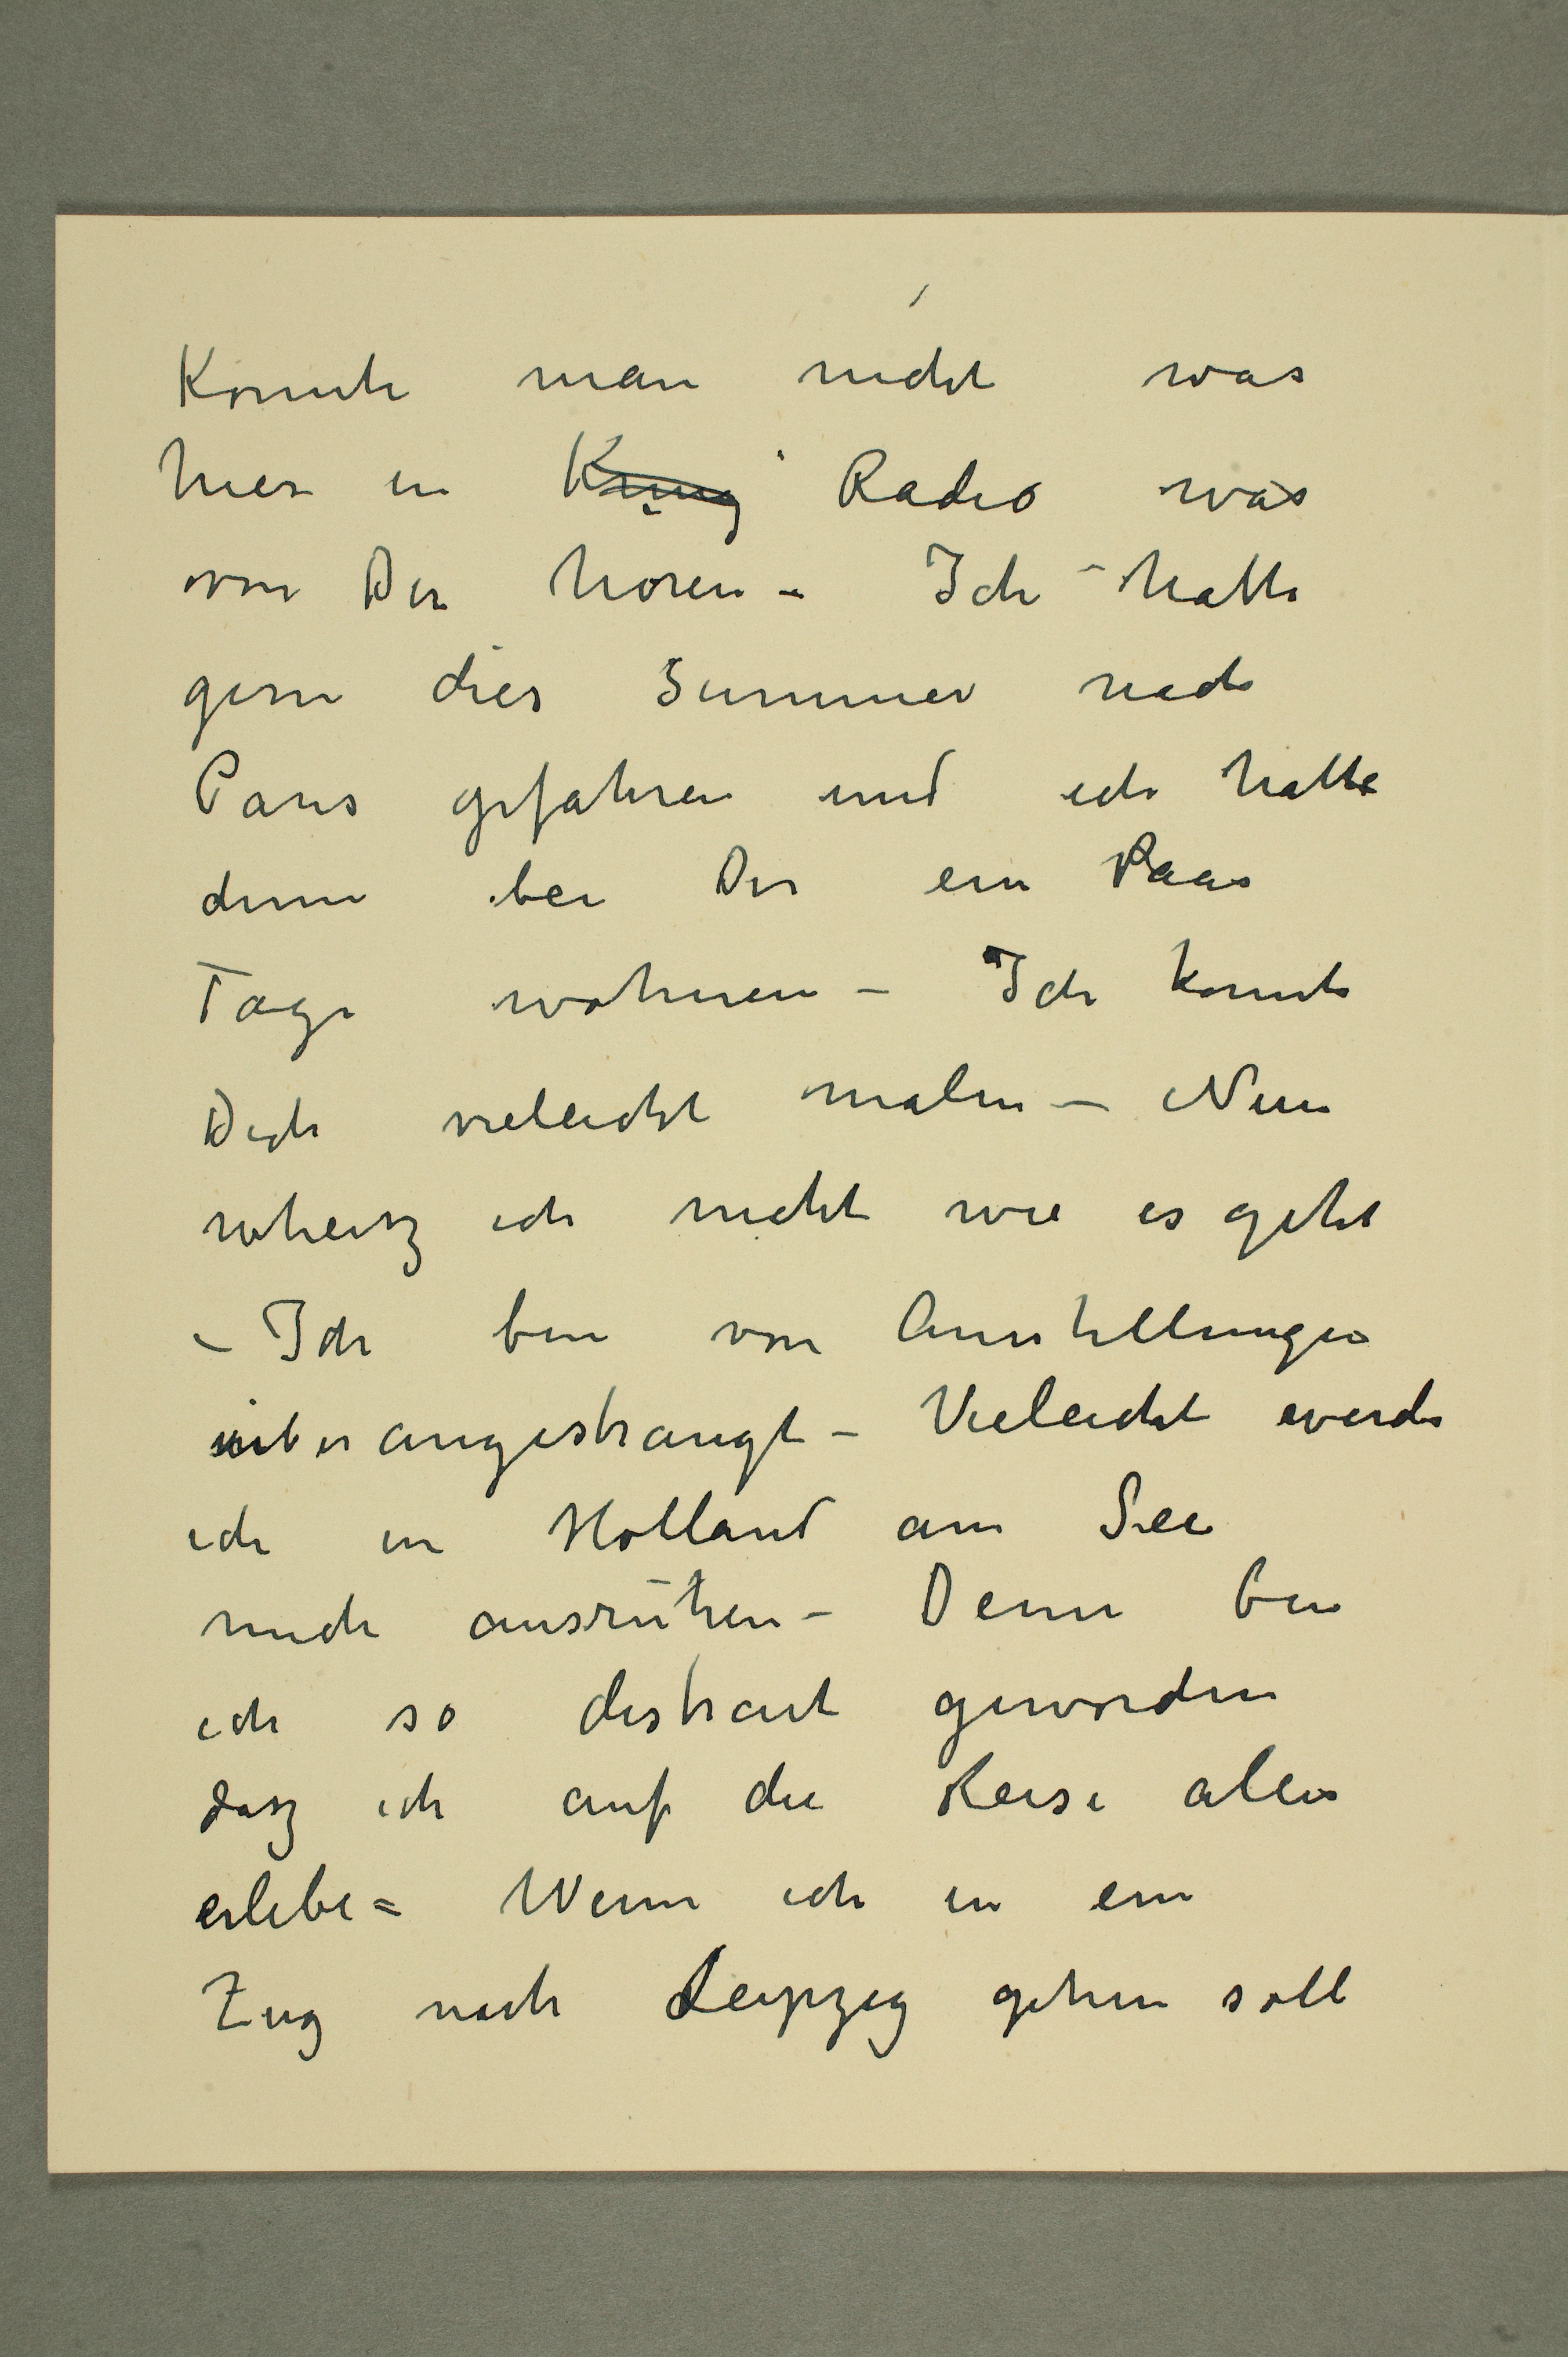 Konnte man nicht was
hier in Kung Radio was
von Dir horen – Ich hatte
gern dies Summer nach
Paris gefahren und ich hatte
denn bei Dir ein Paar
Tage wohnen – Ich konnte
Dich vieleicht malen – Nun
wheisz ich nicht wie es geht
– Ich bin von Ausstellungen
uberangestrangt – Vieleicht werde
ich in Holland am See
mich ausruhen – Denn bin
ich so distrait geworden
dasz ich auf die Reise alles
erlebe = Wenn ich in ein
Zug nach Leipzig gehen soll